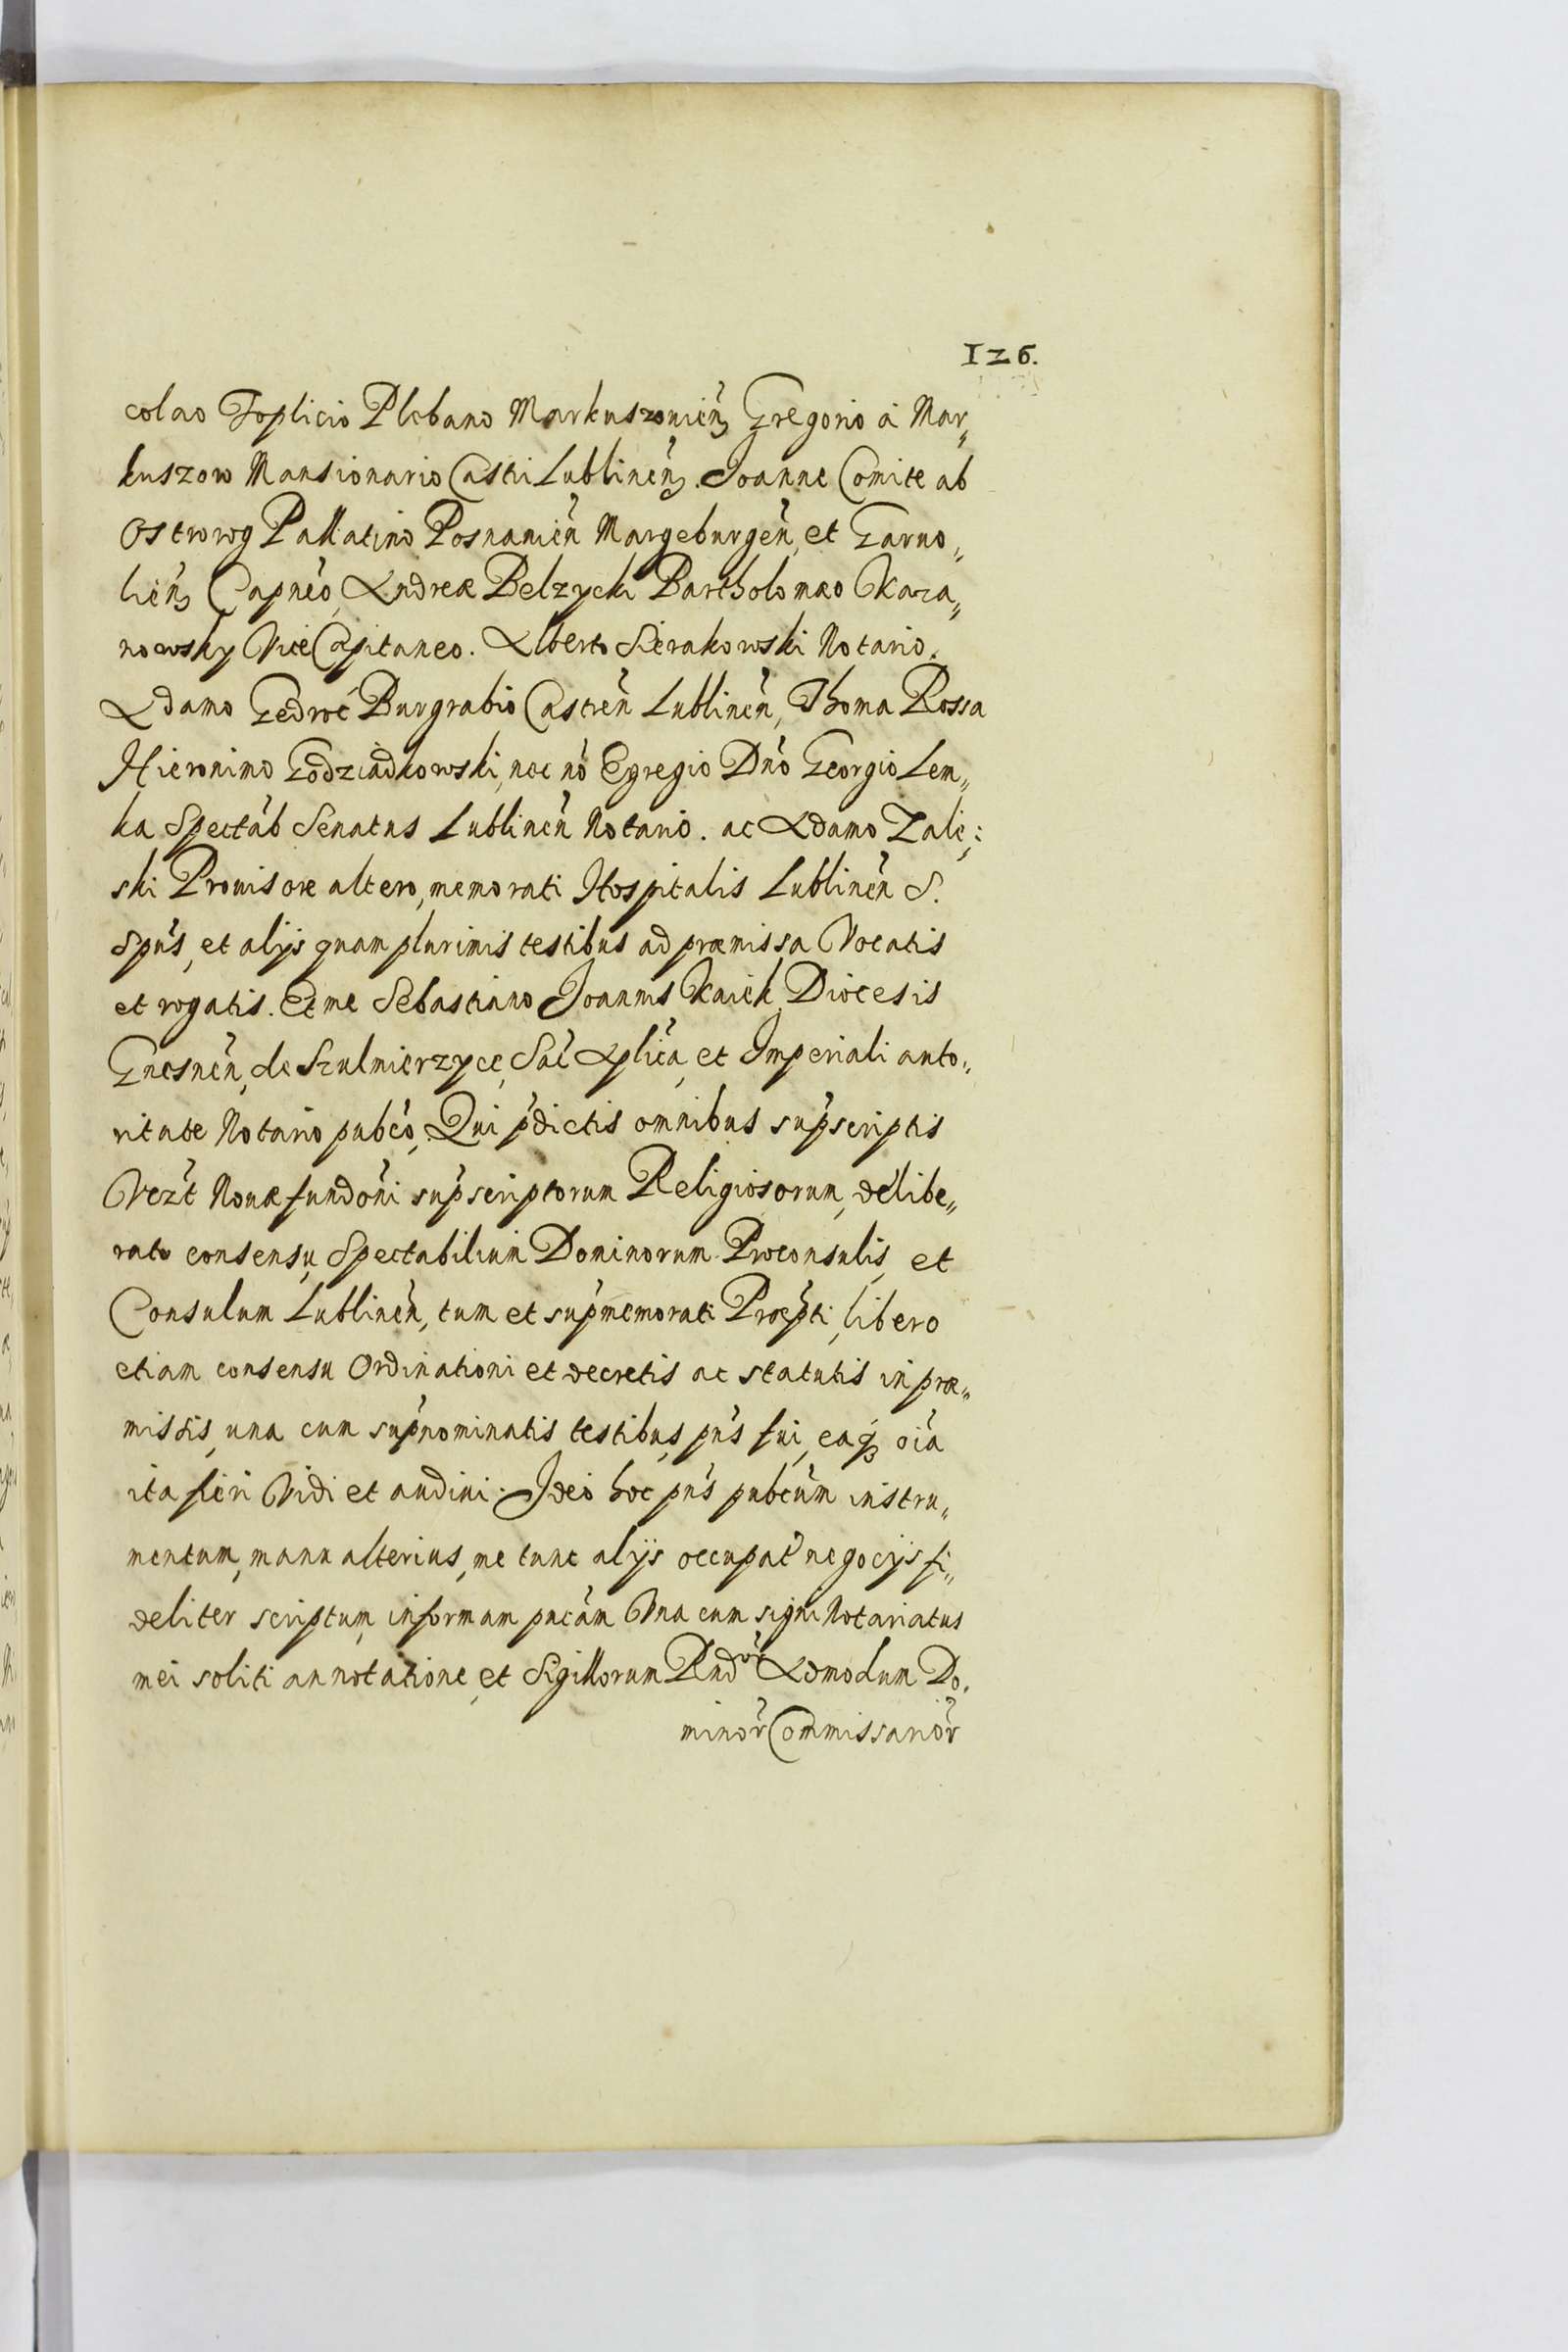 126.
colao Toplicio Plebano Markuszouień Gregorio à Mar„
kuszow Mansionario Castri Lublineń. Joanne Comite ab
Ostrorog Pallatino Posnanień Margeburgeń, et Garuo„
lień Capneo, Andreæ Belzycki Bartholomæo Kaza„
nowsky ViceCapitaneo. Alberto Sierakowski Notario.
Adamo Gedroć Burgrabio Castreń Lublineń, Thoma Rossa
Hieronimo Godziadkowski, nec nō Egregio Dnō Georgio Lem„
ka Spectab Senatus Lublineń Notario. ac Adamo Zale„
ski Prouisore altero, memorati Hospitalis Lublineń S.
Spūs, et alijs quam plurimis testibus ad præmissa Vocatis
et rogatis. Et me Sebastiano Joannis Kaick Diocesis
Gnesneń, de Szulmierzyce, Sac Aplica, et Imperiali auto„
ritate Notario pubco, Qui pdictis omnibus supscriptis
Vezt Nouæ fundoni supscriptorum Religiosorum, delibe„
rato consensu, Spectabilium Dominorum Proconsulis, et
Consulum Lublineń, tum et supmemorati Præpti, libero
etiam consensu Ordinationi et decretis ac statutis in præ„
missis, una cum supnominatis testibus, pns fui, eaq oia
ita fieri Vidi et audiui. Ideo hoc pns pubcum instru„
mentum, manu alterius, me tunc alijs occupat negocijs fi„
deliter scriptum, informam pucam Una cum signi Notariatus
mei soliti annotatione, et Sigillorum Rndor Admodum Do.
minor Commissarior